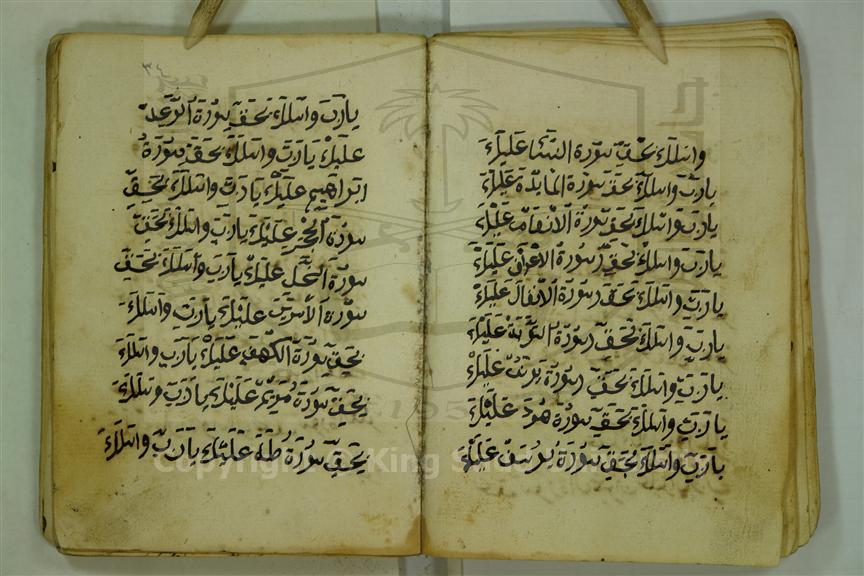 واسئلك بحق سورة النساء عليك
يارب واسئلك بحق سورة المائدة عليك
يارب واسئلك بحق سورة الانعام عليك
يارب واسئلك بحق سورة الاعراف عليك
يارب واسئلك بحق سورة الانفال عليك
يارب واسئلك بحق سورة التوبة عليك
يارب واسئلك بحق سورة يونس عليك
يارب واسئلك بحق سورة هود عليك
يارب واسئلك بحق سورة يوسف عليك
٣٤
يارب واسئلك بحق سورة الرعد
عليك يارب واسئلك بحق سورة
ابراهيم عليك يارب واسئلك بحق
سورة الحجر عليك يارب واسئلك بحق
سورة النحل عليك يارب واسئلك بحق
سورة الاسرى عليك يارب واسئلك
بحق سورة الكهف عليك يارب واسئلك
بحق سورة مريم عليك يارب واسئلك
بحق سورة طه عليك يارب واسئلك
Copyright © King S